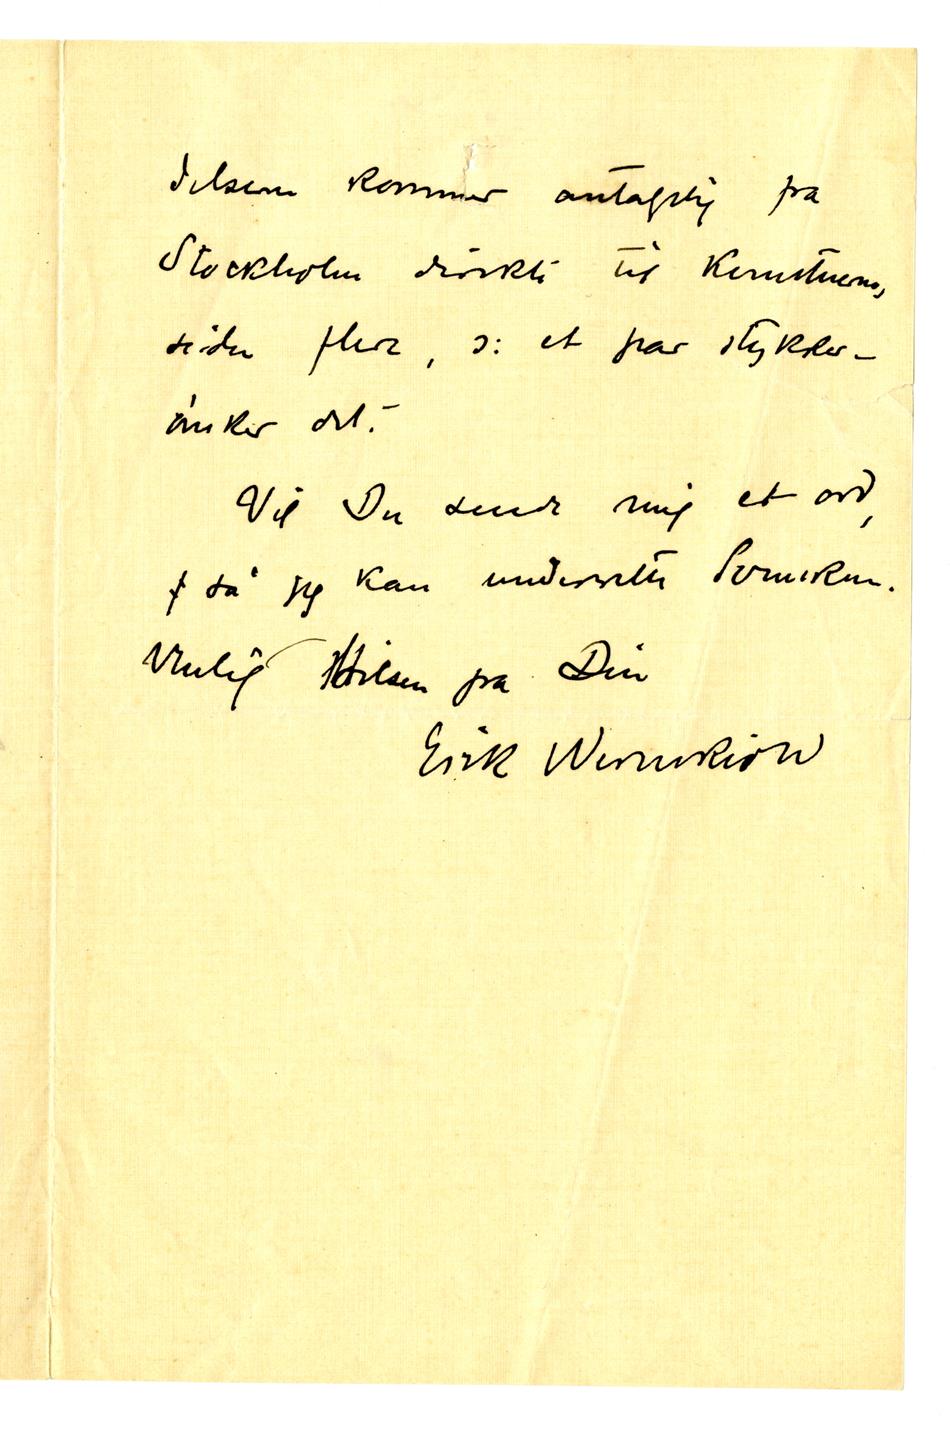 delsern kommer antagelig fra
Stockholm direkte til Kunstnerns,
siden flere, ɔ: et par stykker –
ønsker det. –
Vil Du sende mig et ord,
så jeg kan underrette Svensken.
Venlig Hilsen fra Din
Erik Werenskiold